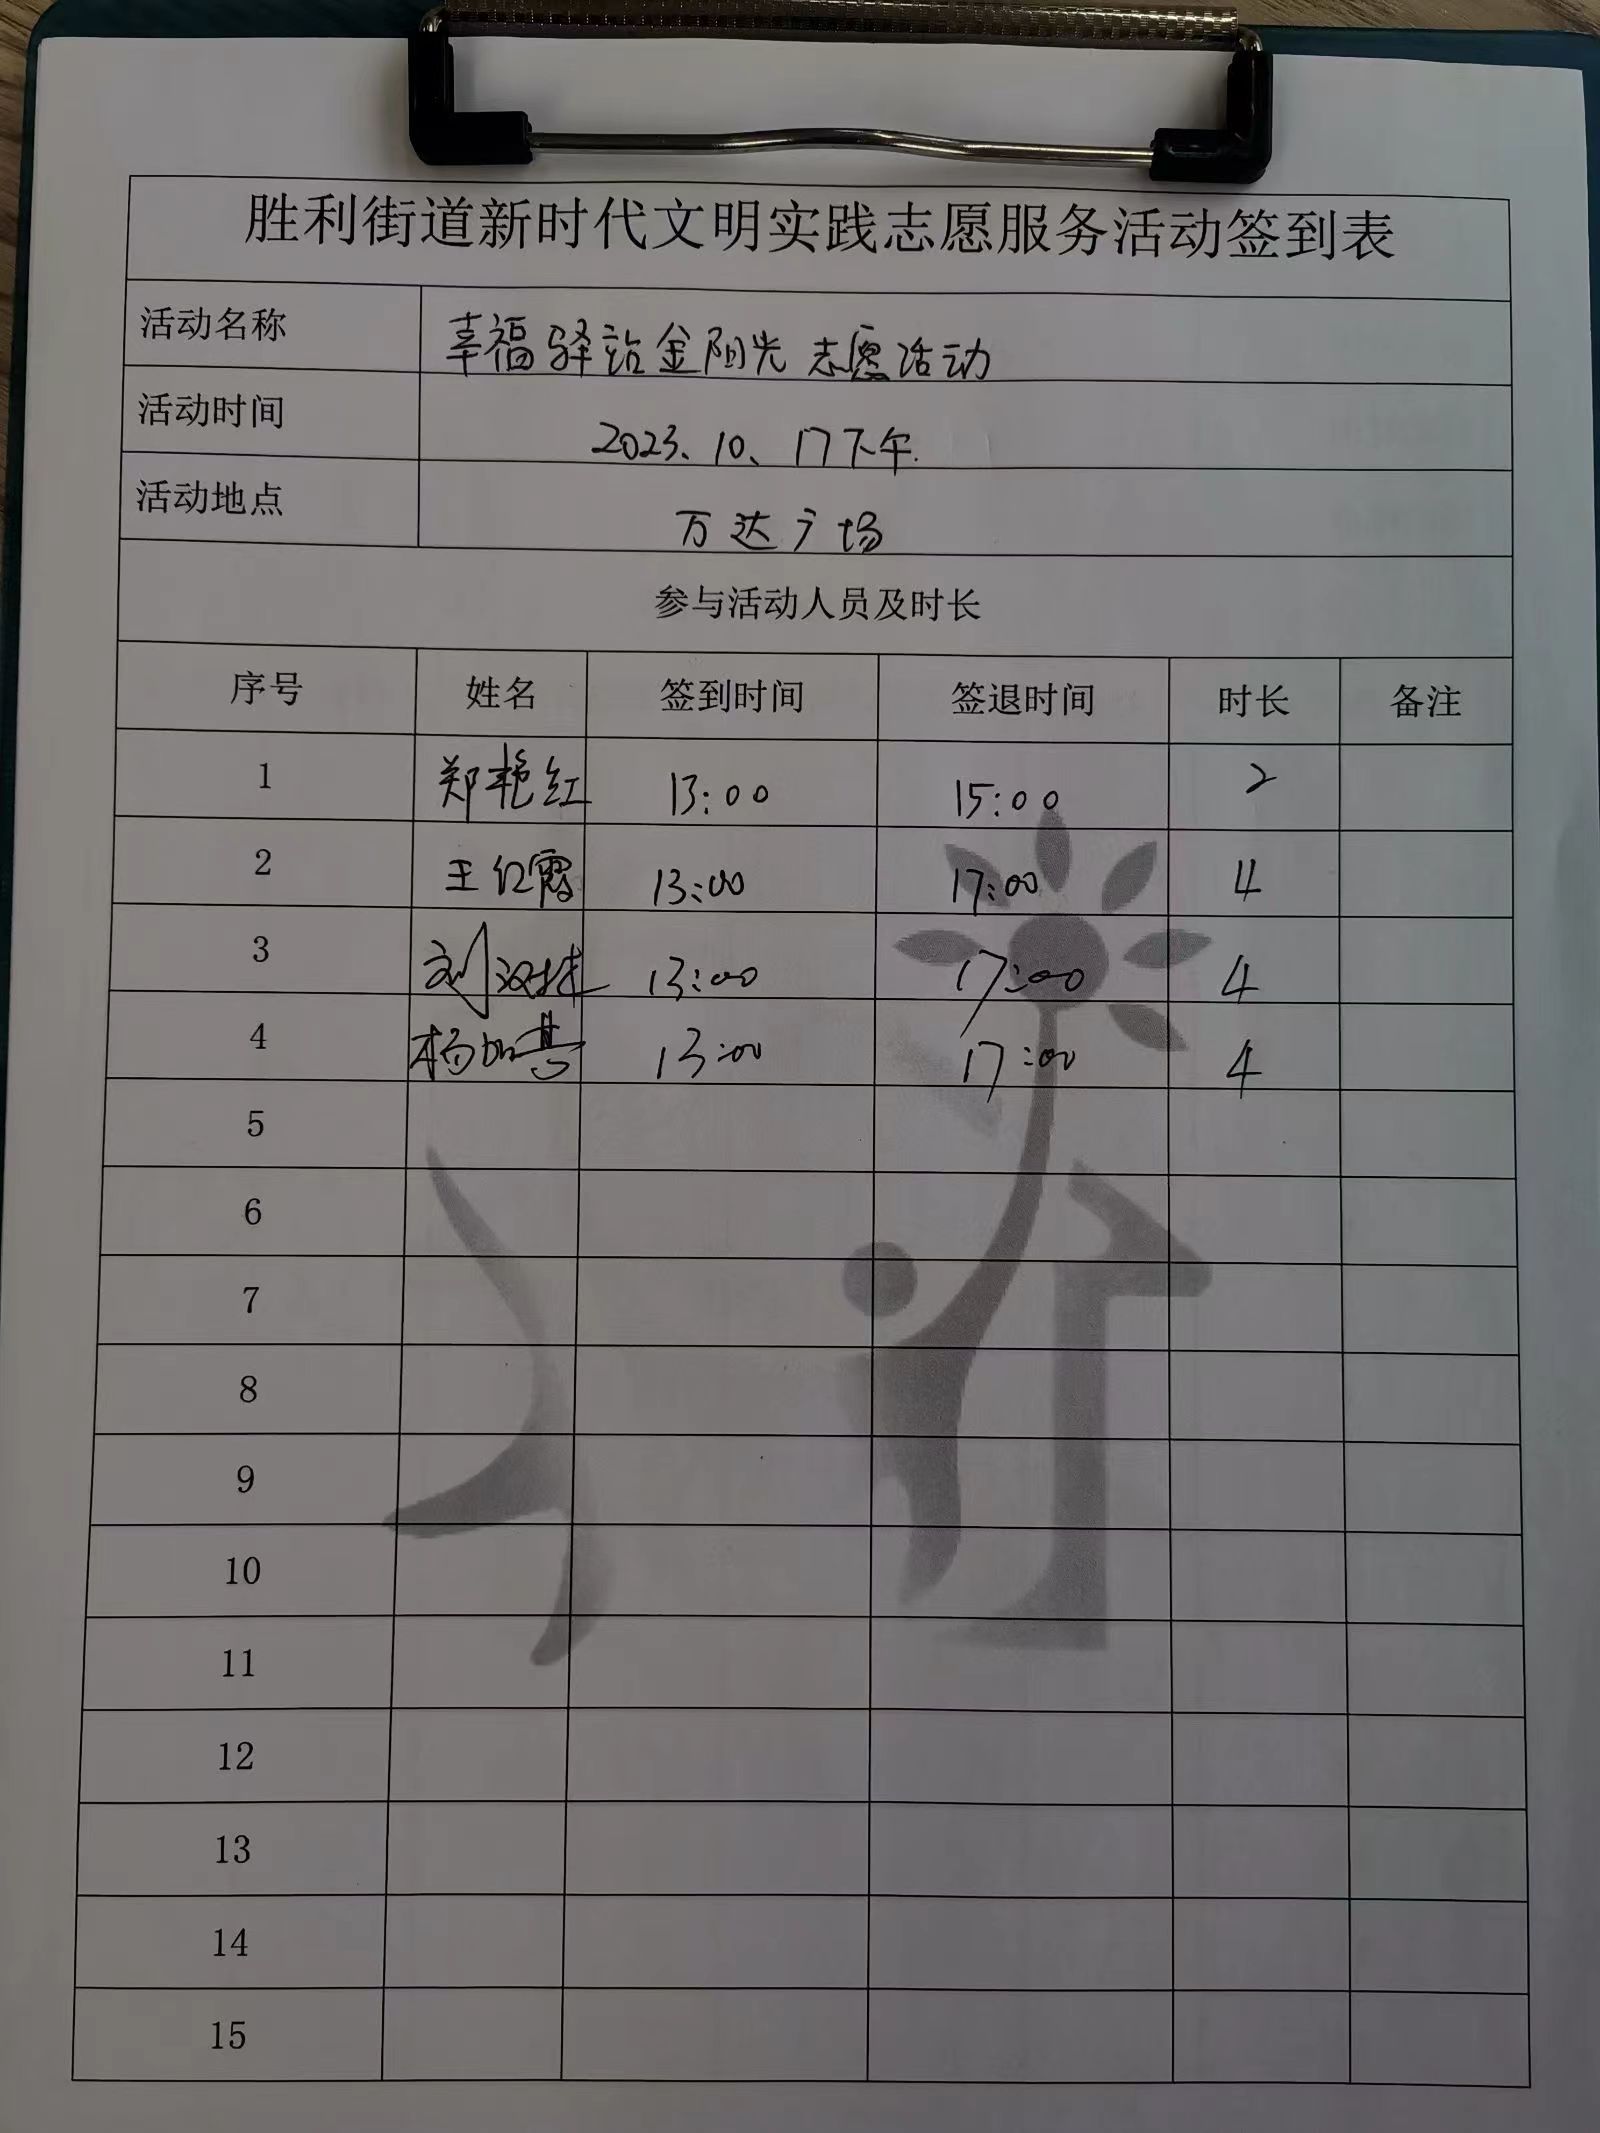 胜利街道新时代文明实践志愿服务活动签到表
活动名称 幸福驿站金阳光志愿活动
活动时间 2023、10、17下午.
活动地点 万达广场
参与活动人员及时长
序号 姓名 签到时间 签退时间 时长 备注
1 郑艳红 13:00 15:00 2
2 王红霞 13:00 17:00 4
3 刘 13:00 17:00 4
4 杨 13:00 17:00 4
5
6
7
8
9
10
11
12
13
14
15